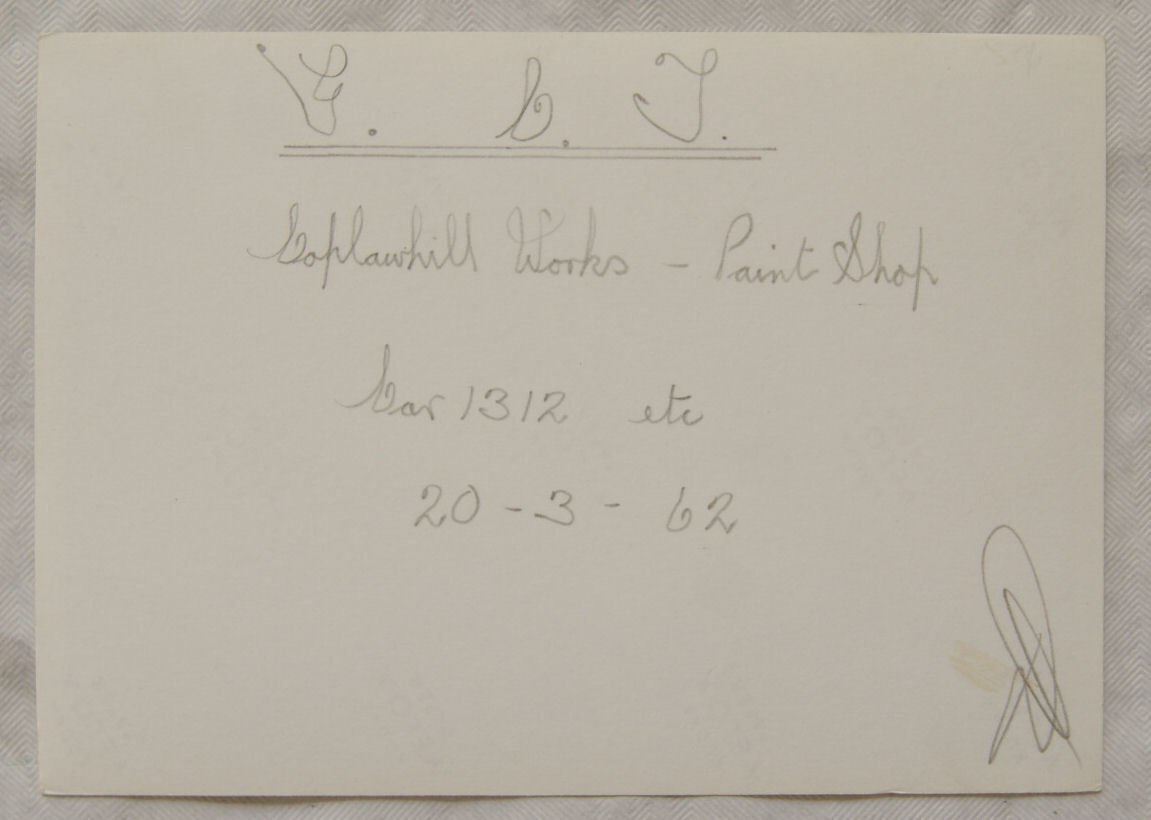 G. C. T.
Coplawhill Works - Paint Shop
Car 1312 etc
20 - 3 - 62